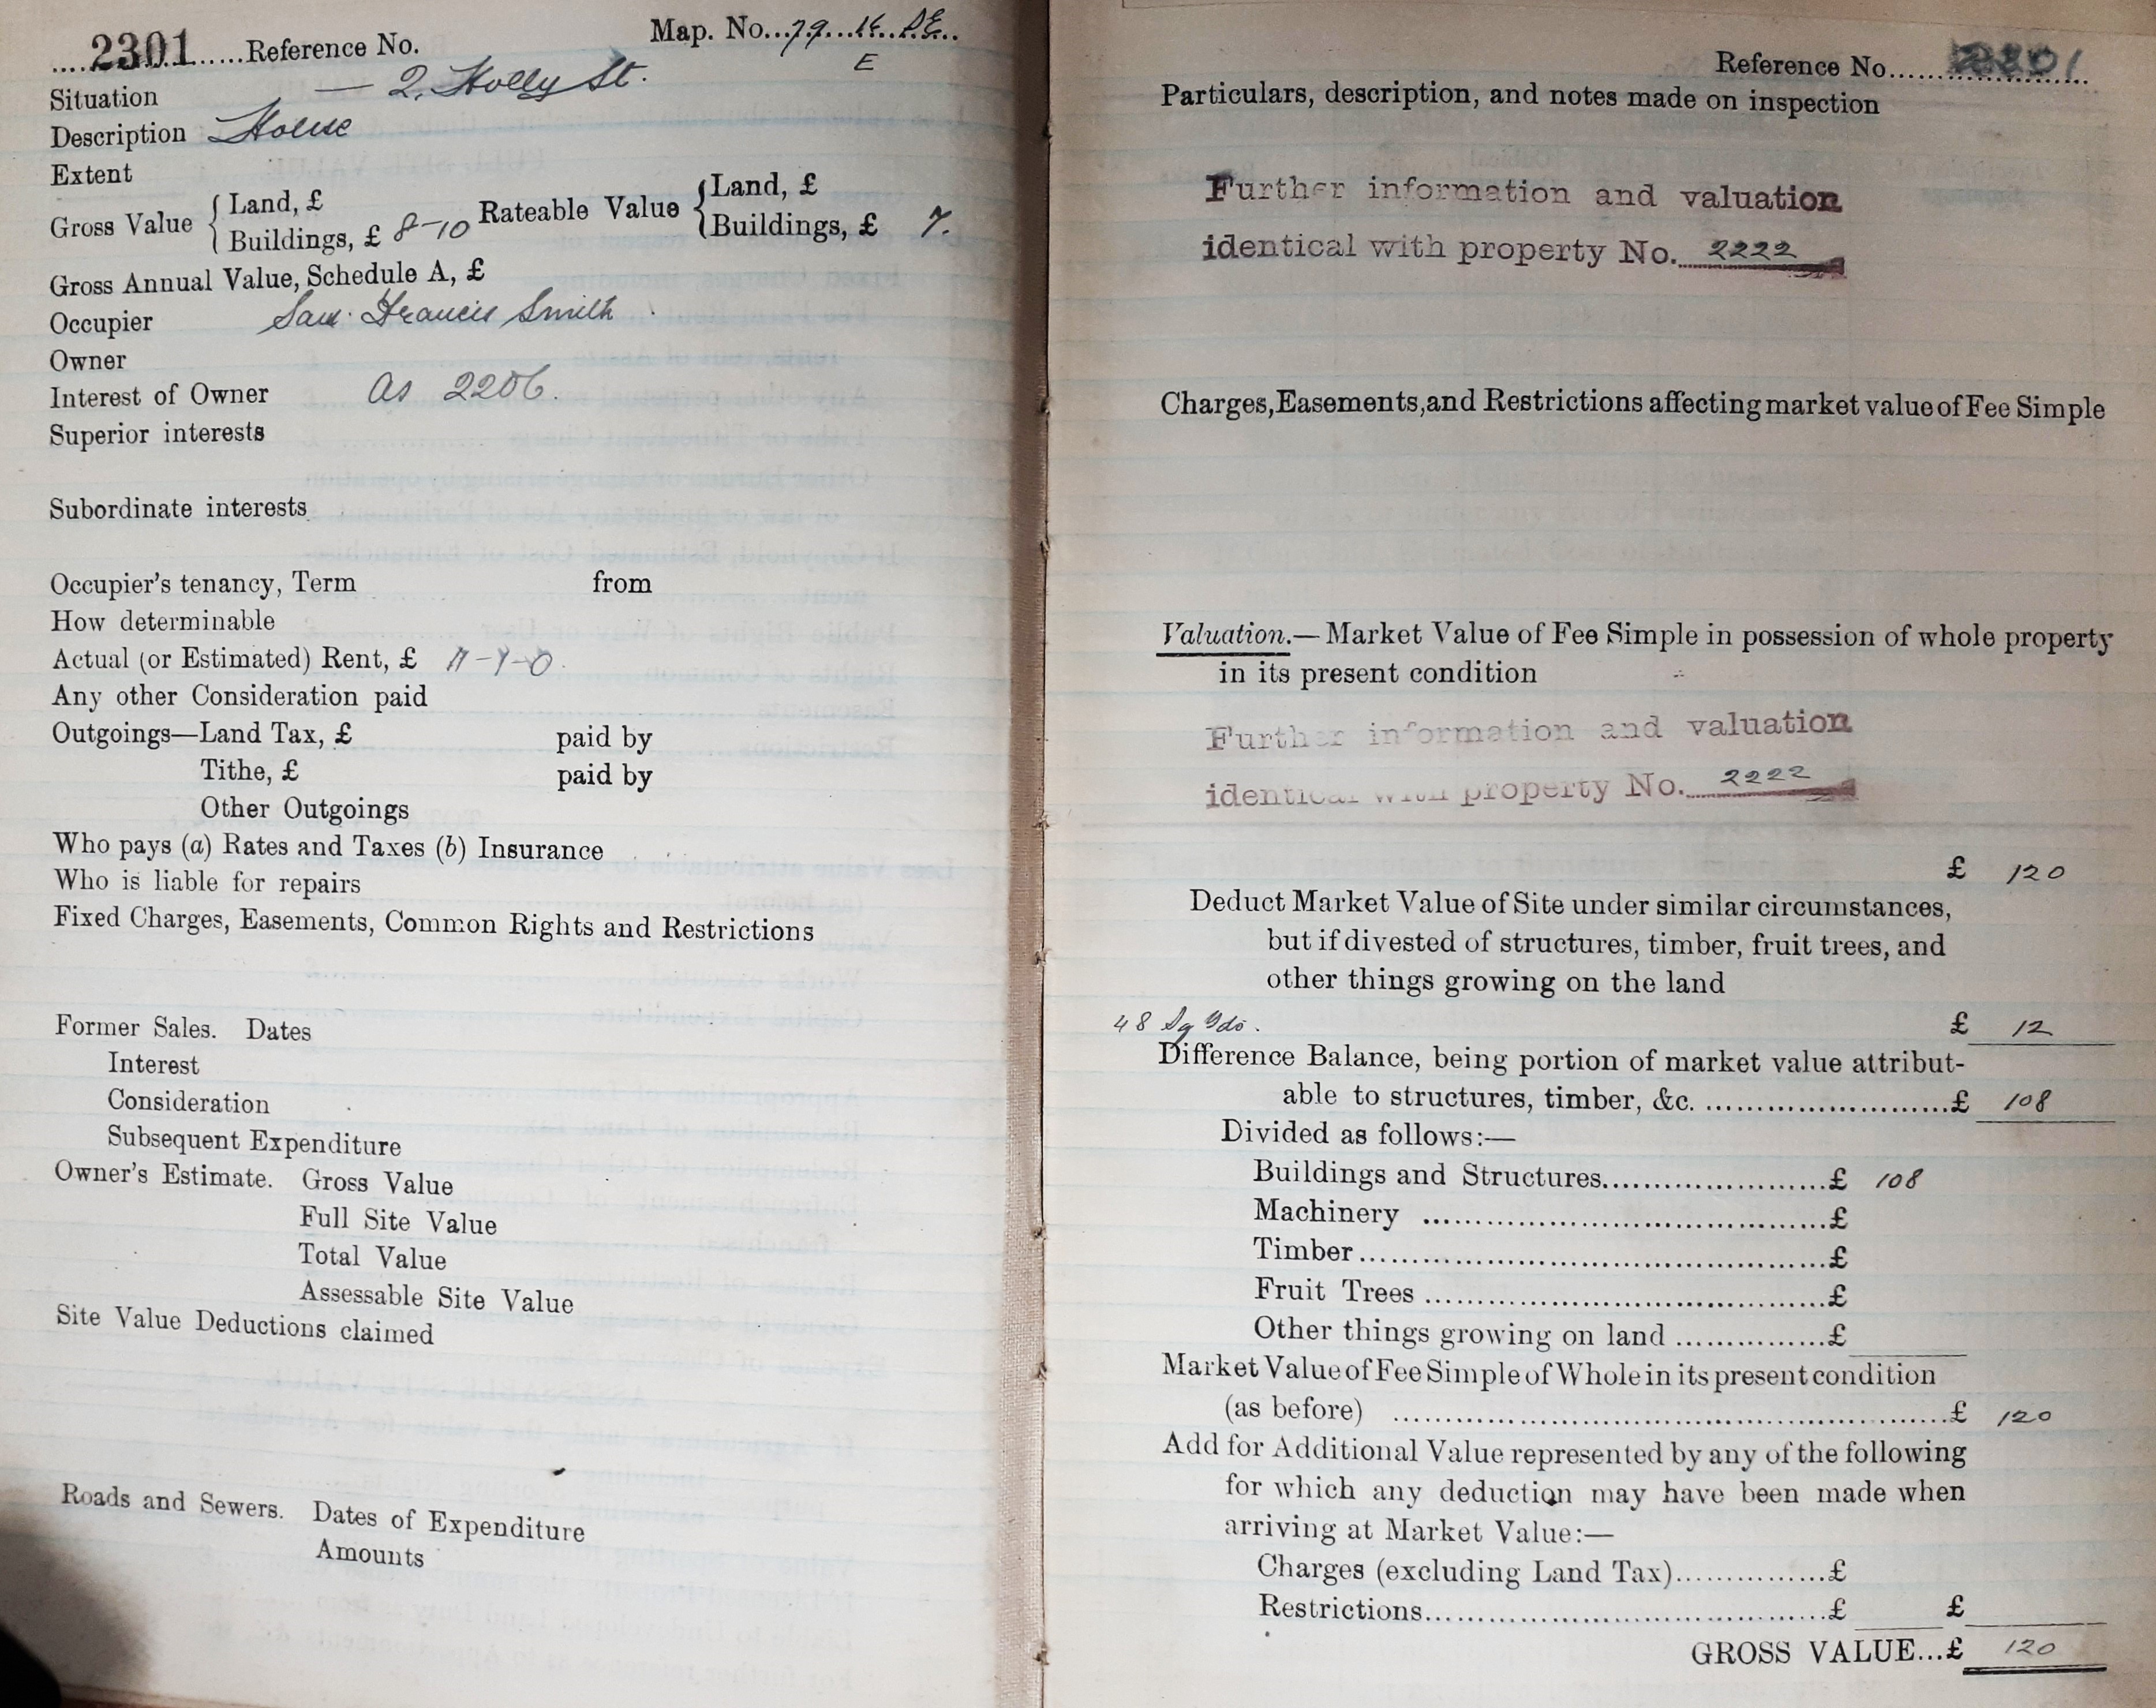 2301 Reference No. Map. No. 79. 16. S.E.
E
Situation — 2, Holly St.
Description House
Extent
Gross Value { Land, £ Rateable Value { Land, £
Buildings, £ 8-10 Buildings, £ 7.
Gross Annual Value, Schedule A, £
Occupier Saml. Francis Smith
Owner
Interest of Owner As 2206.
Superior interests
Subordinate interests
Occupier's tenancy, Term from
How determinable
Actual (or Estimated) Rent, £
Any other Consideration paid
Outgoings—Land Tax, £ paid by
Tithe, £ paid by
Other Outgoings
Who pays (a) Rates and Taxes (b) Insurance
Who is liable for repairs
Fixed Charges, Easements, Common Rights and Restrictions
Former Sales. Dates
Interest
Consideration
Subsequent Expenditure
Owner's Estimate. Gross Value
Full Site Value
Total Value
Assessable Site Value
Site Value Deductions claimed
Roads and Sewers. Dates of Expenditure
Amounts
Reference No. 2301
Particulars, description, and notes made on inspection
Further information and valuation
identical with property No. 2222
Charges, Easements, and Restrictions affecting market value of Fee Simple
Valuation.—Market Value of Fee Simple in possession of whole property
in its present condition
Further information and valuation
identical with property No. 2222
£ 120
Deduct Market Value of Site under similar circumstances,
but if divested of structures, timber, fruit trees, and
other things growing on the land
48 Sq Yds. £ 12
Difference Balance, being portion of market value attribut-
able to structures, timber, &c. £ 108
Divided as follows:—
Buildings and Structures £ 108
Machinery £
Timber £
Fruit Trees £
Other things growing on land £
Market Value of Fee Simple of Whole in its present condition
(as before) £ 120
Add for Additional Value represented by any of the following
for which any deduction may have been made when
arriving at Market Value:—
Charges (excluding Land Tax) £
Restrictions £ £
GROSS VALUE...£ 120